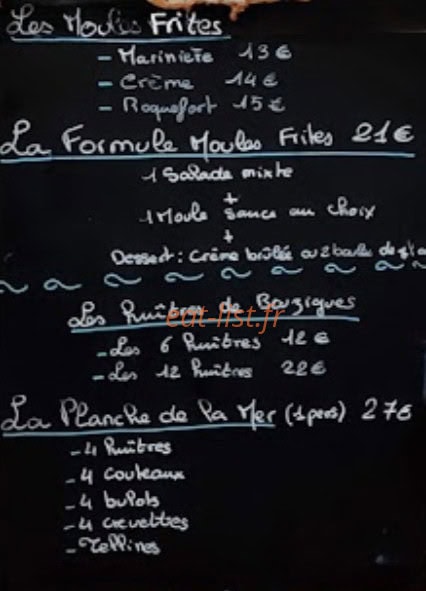 Les Moules Frites
- Marinière 13€
- Crème 14€
- Roquefort 15€
La Formule Moules Frites 21€
1 Salade mixte
+
1 Moule sauce au choix
+
Dessert : Crème brûlée ou 2 boules de
Les huîtres de Bouzigues
eat-list.fr
- Les 6 huîtres 12€
- Les 12 huîtres 22€
La Planche de la Mer (1 pers) 27€
- 4 huîtres
- 4 couteaux
- 4 bulots
- 4 crevettes
- Tellines